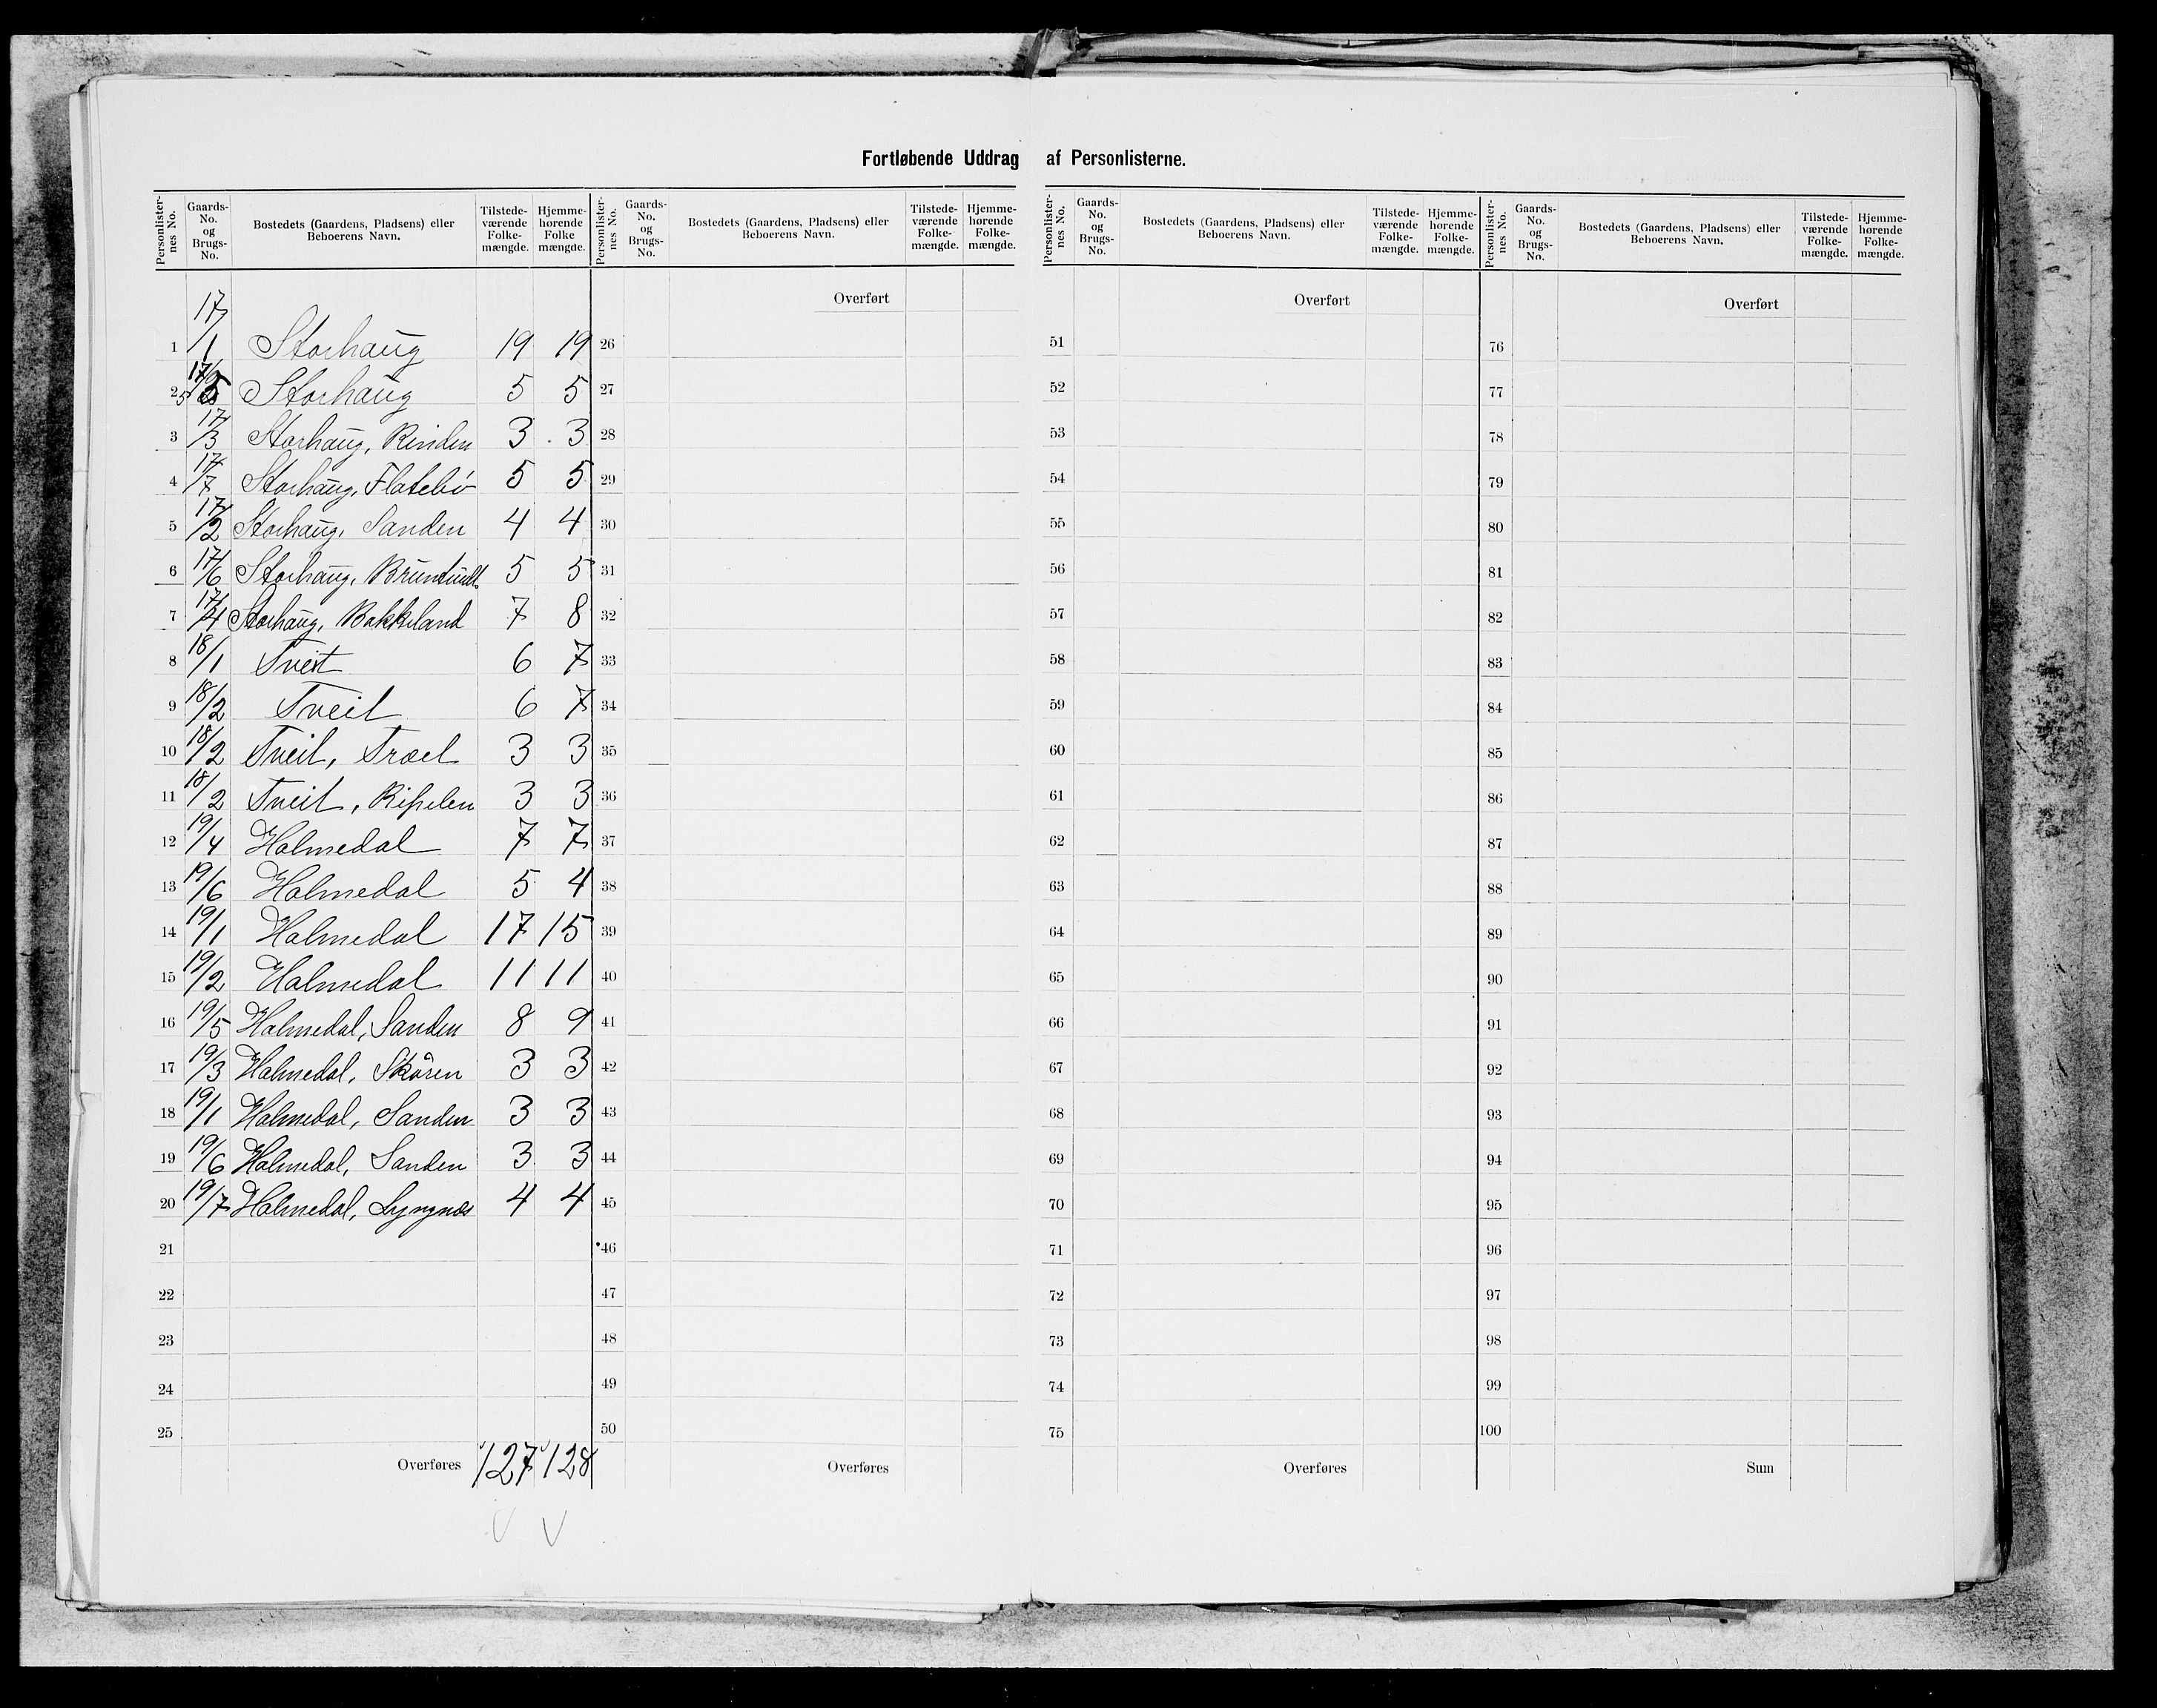 Fortløbende Uddrag af Personlisterne.
Personlisternes No. Gaards-No. og Brugs-No. Bostedets (Gaardens, Pladsens) eller Beboerens Navn. Tilstedeværende Folkemængde. Hjemmehørende Folke mængde.
1 17/1 Storhaug 19 19
2 17/5 Storhaug 5 5
3 17/3 Storhaug, Rinden 3 3
4 17/7 Storhaug, Flatebø 5 5
5 17/2 Storhaug, Sanden 4 4
6 17/6 Storhaug, 5 5
7 17/4 Storhaug, Bakkeland 7 8
8 18/1 Tveit 6 7
9 18/2 Tveit 6 7
10 18/2 Tveit, Træet 3 3
11 18/2 Tveit, Ripelen 3 3
12 19/4 Holmedal 7 7
13 19/6 Holmedal 5 4
14 19/1 Holmedal 17 15
15 19/2 Holmedal 11 11
16 19/5 Holmedal, Sanden 8 9
17 19/3 Holmedal, Skåren 3 3
18 19/1 Holmedal, Sanden 3 3
19 19/6 Holmedal, Sanden 3 3
20 19/7 Holmedal, Lyngnæs 4 4
21
22
23
24
25
Overføres 127 128
Personlisternes No. Gaards-No. og Brugs-No. Bostedets (Gaardens, Pladsens) eller Beboerens Navn. Tilstedeværende Folkemængde. Hjemmehørende Folkemængde.
Overført
26
27
28
29
30
31
32
33
34
35
36
37
38
39
40
41
42
43
44
45
46
47
48
49
50
Overføres
Personlisternes No. Gaards-No. og Brugs-No. Bostedets (Gaardens, Pladsens) eller Beboerens Navn. Tilstedeværende Folkemængde. Hjemmehørende Folkemængde.
Overført
51
52
53
54
55
56
57
58
59
60
61
62
63
64
65
66
67
68
69
70
71
72
73
74
75
Overføres
Personlisternes No. Gaards-No. og Brugs-No. Bostedets (Gaardens, Pladsens) eller Beboerens Navn. Tilstedeværende Folkemængde. Hjemmehørende Folkemængde.
Overført
76
77
78
79
80
81
82
83
84
85
86
87
88
89
90
91
92
93
94
95
96
97
98
99
100
Sum